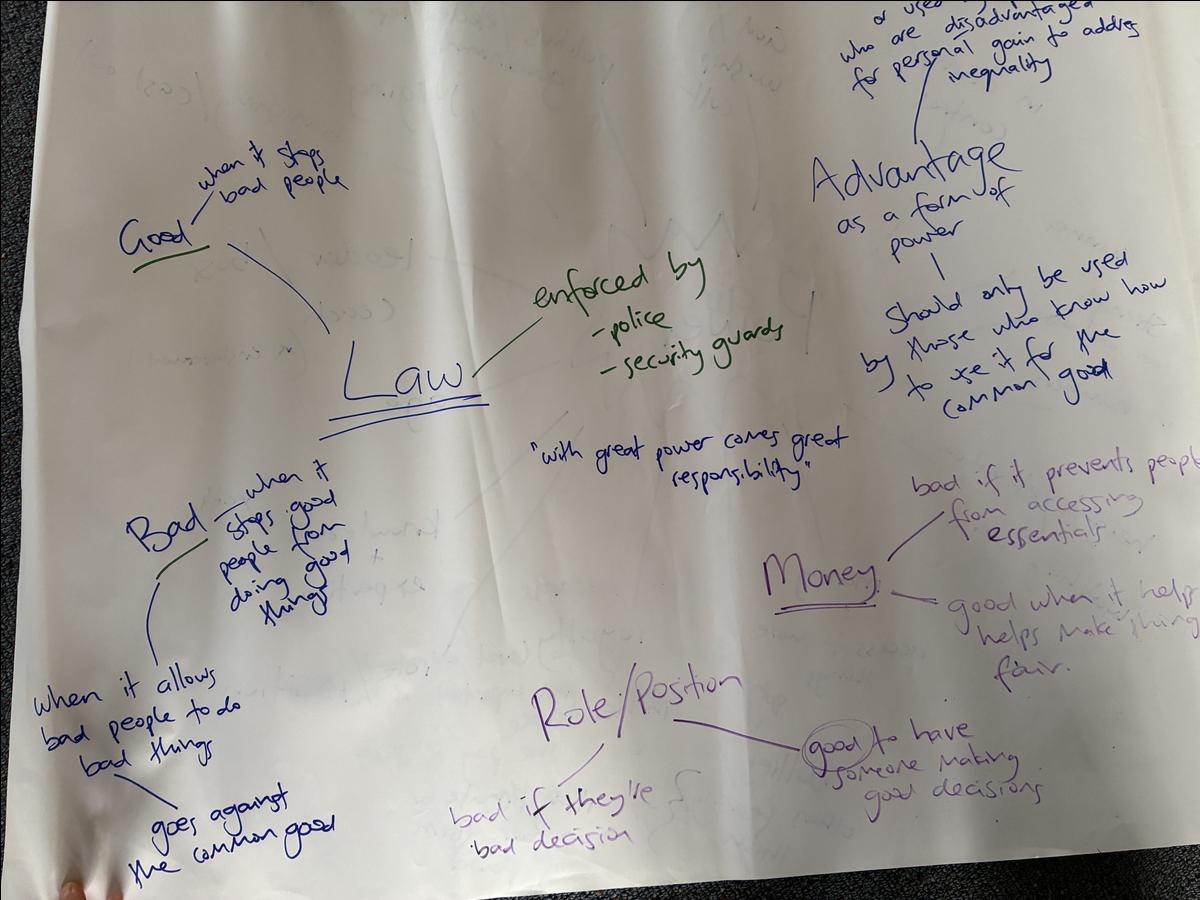 or used
who are disadvantaged
for personal gain to address
inequality
Advantage
as a form of
power
Should only be used
by those who know how
to use it for the
common good
when it stops
bad people
Good
enforced by
- police
- security guards
Law
"with great power comes great
responsibility"
Bad
when it
stops good
people from
doing good
things
when it allows
bad people to do
bad things
goes against
the common good
bad if it prevents people
from accessing
essentials
Money
good when it help
helps make thing
fair.
Role/Position
good to have
someone making
good decisions
bad if they're
bad decision